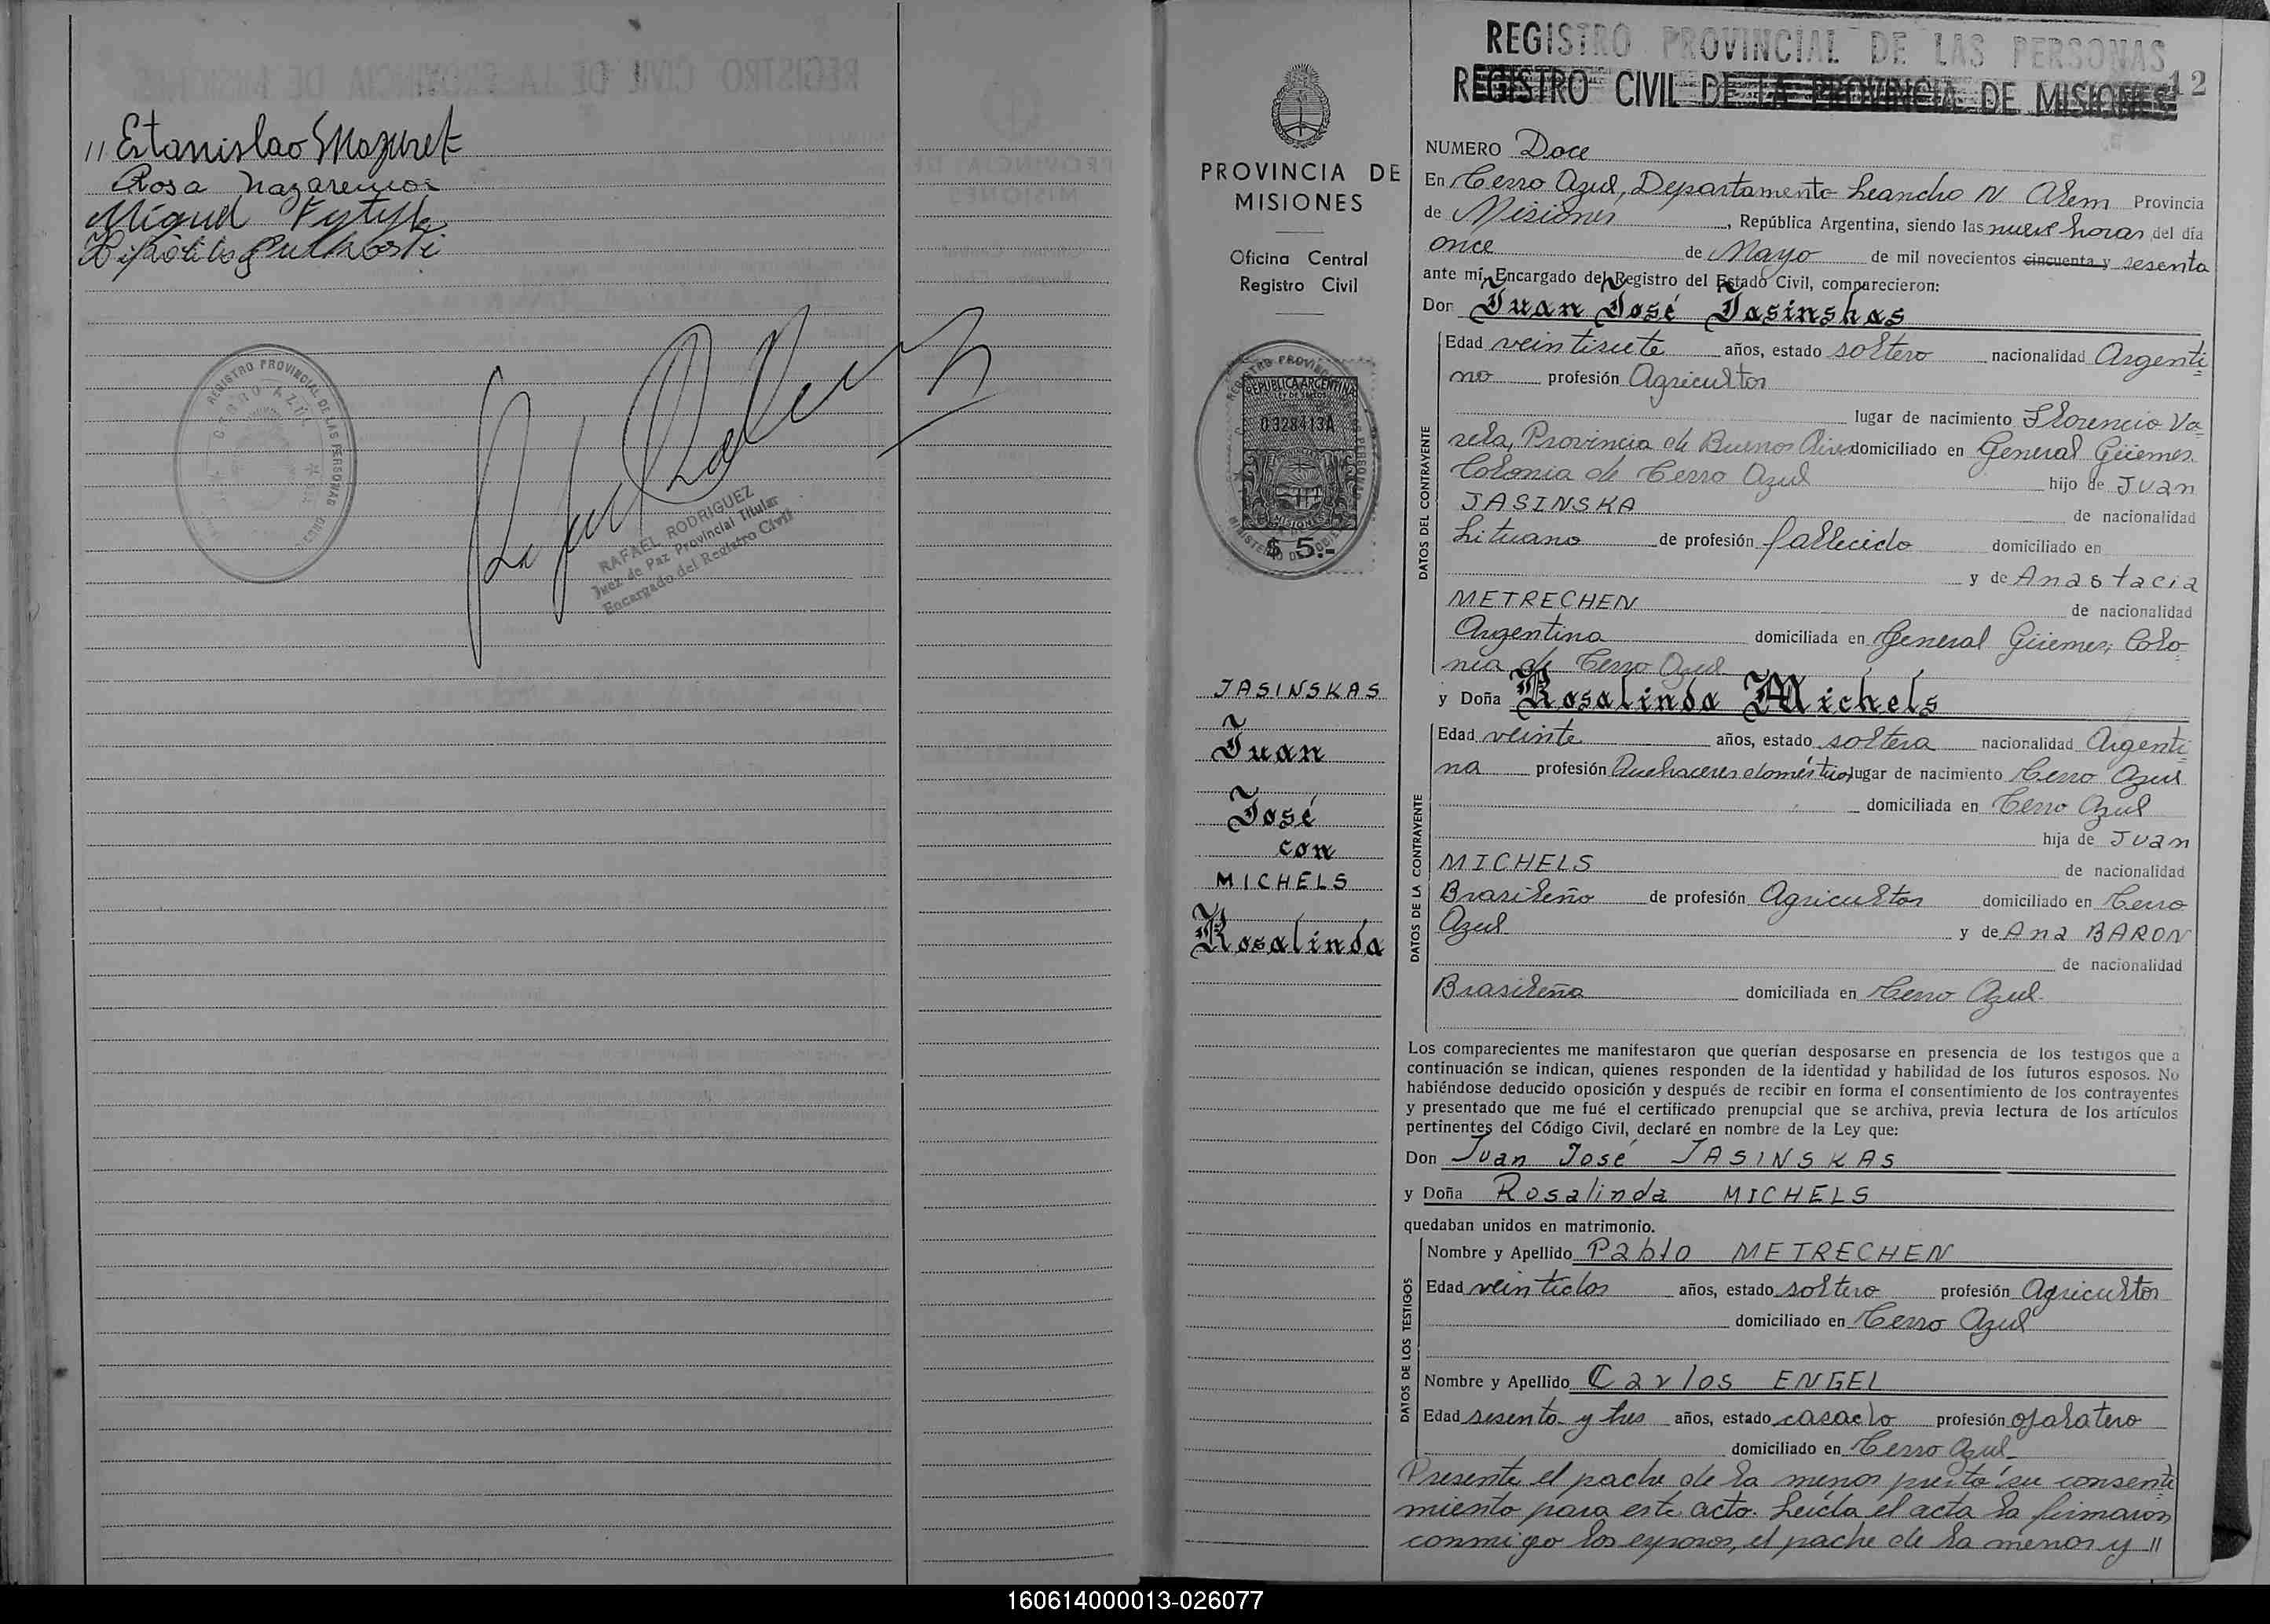 // Estanislao Mazuret
Rosa Nazarenco
Miguel
REGISTRO PROVINCIAL DE LAS PERSONAS
CERRO AZUL
RAFAEL RODRIGUEZ
Juez de Paz Provincial Titular
Encargado del Registro Civil
PROVINCIA DE
MISIONES
Oficina Central
Registro Civil
REPUBLICA ARGENTINA
LEY DE SELLOS
0328413A
MISIONES
$ 5.-
JASINSKAS
Juan
José
con
MICHELS
Rosalinda
REGISTRO PROVINCIAL DE LAS PERSONAS
REGISTRO CIVIL DE LA PROVINCIA DE MISIONES
12
NUMERO Doce
En Cerro Azul, Departamento Leandro N. Alem Provincia
de Misiones, República Argentina, siendo las nueve horas del día
once de Mayo de mil novecientos cincuenta y sesenta
ante mí, Encargado del Registro del Estado Civil, comparecieron:
Don Juan José Jasinskas
DATOS DEL CONTRAYENTE
Edad veintisiete años, estado soltero nacionalidad Argenti=
no profesión Agricultor
lugar de nacimiento Florencio Va=
rela, Provincia de Buenos Aires domiciliado en General Güemes
Colonia de Cerro Azul hijo de Juan
JASINSKA de nacionalidad
Lituano de profesión fallecido domiciliado en
y de Anastacia
METRECHEN de nacionalidad
Argentina domiciliada en General Güemes, Colo=
nia de Cerro Azul
y Doña Rosalinda Michels
DATOS DE LA CONTRAYENTE
Edad veinte años, estado soltera nacionalidad Argenti=
na profesión Quehaceres domésticos lugar de nacimiento Cerro Azul
domiciliada en Cerro Azul
hija de Juan
MICHELS de nacionalidad
Brasileño de profesión Agricultor domiciliado en Cerro
Azul y de Ana BARON
de nacionalidad
Brasileña domiciliada en Cerro Azul.
Los comparecientes me manifestaron que querían desposarse en presencia de los testigos que a
continuación se indican, quienes responden de la identidad y habilidad de los futuros esposos. No
habiéndose deducido oposición y después de recibir en forma el consentimiento de los contrayentes
y presentado que me fué el certificado prenupcial que se archiva, previa lectura de los artículos
pertinentes del Código Civil, declaré en nombre de la Ley que:
Don Juan José JASINSKAS
y Doña Rosalinda MICHELS
quedaban unidos en matrimonio.
DATOS DE LOS TESTIGOS
Nombre y Apellido Pablo METRECHEN
Edad veintidos años, estado soltero profesión Agricultor
domiciliado en Cerro Azul
Nombre y Apellido Carlos ENGEL
Edad sesenta y tres años, estado casado profesión ojalatero
domiciliado en Cerro Azul.
Presente el padre de la menor prestó su consenti=
miento para este acto. Leída el acta la firmaron
conmigo los esposos, el padre de la menor y //
160614000013-026077